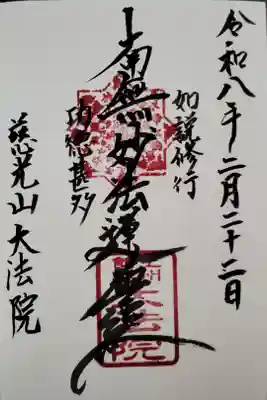 令和八年二月二十二日
如説修行
南無妙法蓮華経
功徳甚多
慈光山 大法院
大法院